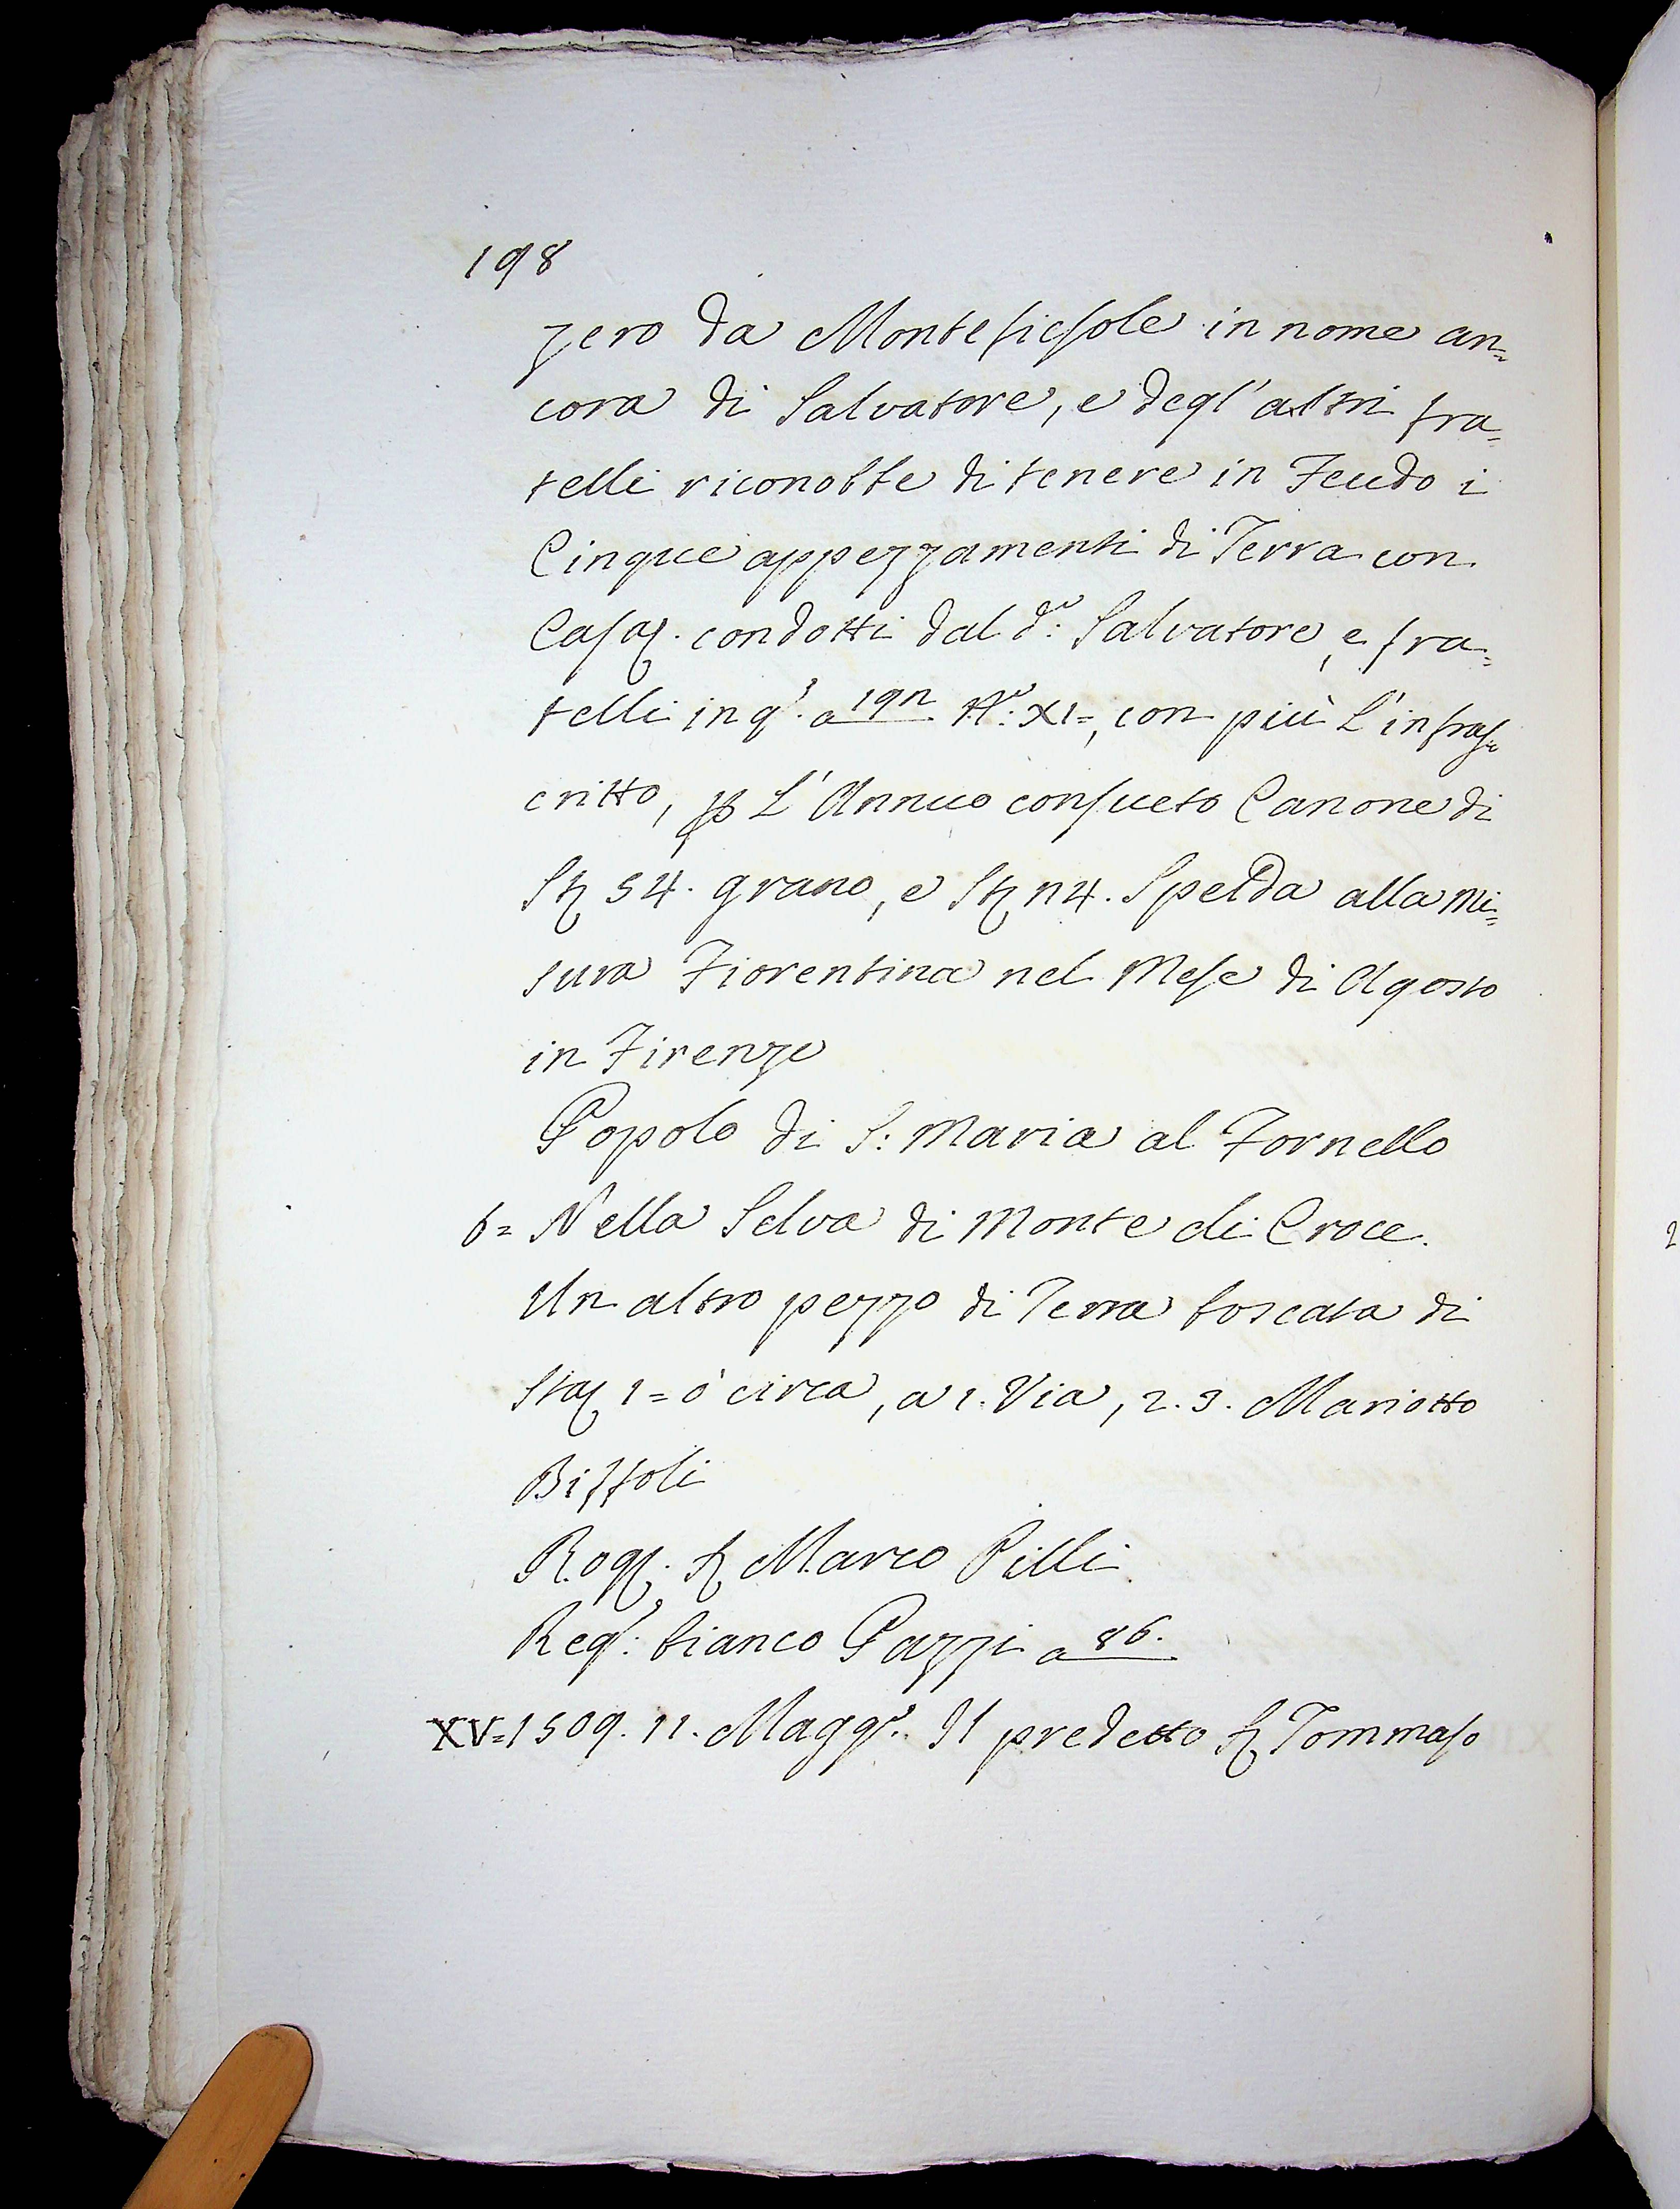 198
zero da Montefiesole in nome an=
cora di Salvatore, e degl'altri fra=
telli riconobbe di tenere in Feudo i
Cinque appezzamenti di Terra con
Casa. condotti dal do: Salvatore, e fra=
telli in qo. a 192 No: XI=, con più l'infras=
critto, p l'Annuo consueto Canone di
St 54. grano, e St 24. Spelda alla Mi=
sura Fiorentina nel Mese di Agosto
in Firenze
Popolo di S: Maria al Fornello
6= Nella Selva di Monte di Croce.
Un altro pezzo di Terra boscata di
Sta 1= ò circa, a 1. Via, 2. 3. Mariotto
Biffoli
Rog. S Marco Pilli
Rego: bianco Pazzi a 86.
XV=1509. 11. Maggo. Il predetto S Tommaso